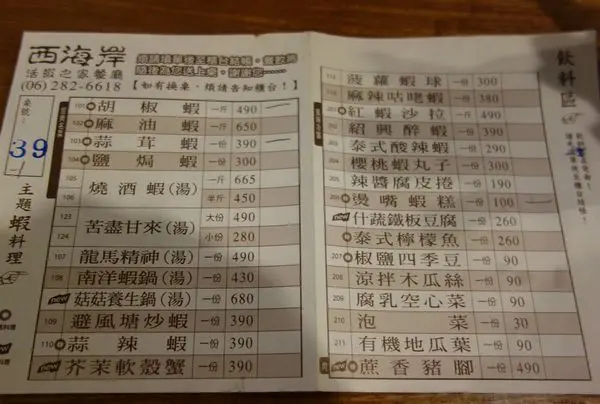 西海岸
活蝦之家餐廳
(06) 282-6618
煩請填單後至櫃台結帳,餐飲亮
隨後為您送上桌,謝謝您……
【如有換桌,煩請告知櫃台!】
桌號:
39
主題蝦料理
101 胡椒蝦 一斤 490 一
102 麻油蝦 一斤 650
103 蒜茸蝦 一份 390 一
104 鹽焗蝦 一份 300
105 燒酒蝦(湯) 一斤 665
106 半斤 450
123 苦盡甘來(湯) 大份 490
124 小份 280
107 龍馬精神(湯) 一份 490
108 南洋蝦鍋(湯) 一份 430
new 菇菇養生鍋(湯) 一份 680
109 避風塘炒蝦 一份 390
110 蒜辣蝦 一份 390
new 芥茉軟殼蟹 一份 390
飲料區
菠蘿蝦球 一份 300
麻辣咕嗞蝦 一份 380
紅蝦沙拉 一斤 490
紹興醉蝦 一份 390
203 泰式酸辣蝦 一份 290
204 櫻桃蝦丸子 一份 300
205 辣醬腐皮捲 一份 190
燙嘴蝦糕 一份 100 一
new 什蔬鐵板豆腐 一份 260
泰式檸檬魚 一份 260
207 椒鹽四季豆 一份 90
208 涼拌木瓜絲 一份 90
209 腐乳空心菜 一份 90
210 泡菜 一份 30
211 有機地瓜葉 一份 90
new 蔗香豬腳 一份 490